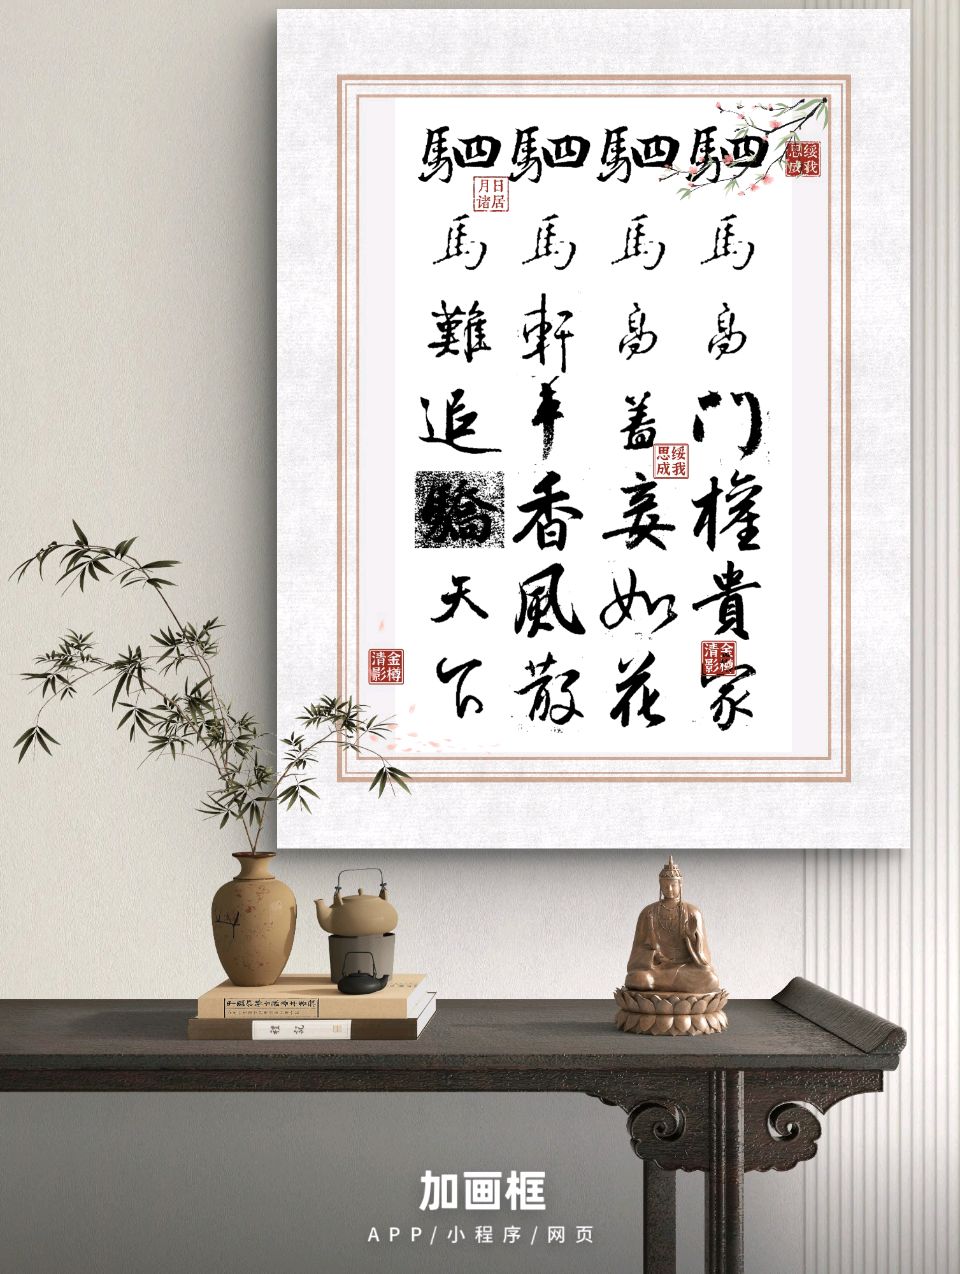 駟馬高門權貴家
駟馬高盖妾如花
駟馬軒车香風散
駟馬難追驕天下
绥我思成
日居月诸
绥我思成
金樽清影
金樽清影
加画框
APP/小程序/网页